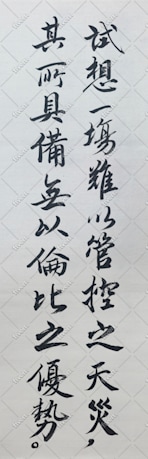 試想一場難以管控之天災，
其所具備無以倫比之優勢。